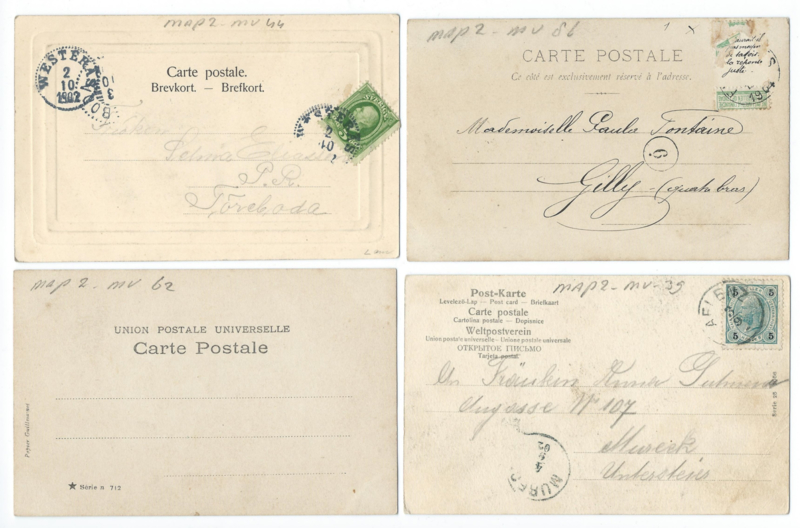 map 2 - mv 44
WESTERÅS
2
10
1902
Carte postale.
Brevkort. — Brefkort.
WESTERÅS
2
10
Selma
P. R.
Töreboda
map 2 - mv 86
CARTE POSTALE
Ce côté est exclusivement réservé à l'adresse.
1904
Mademoiselle Paula Fontaine
6
Gilly - (quatre bras)
map 2 - mv 62
UNION POSTALE UNIVERSELLE
Carte Postale
★ Série n 712
map 2 - mv - 39
Post-Karte
Levelező-Lap — Post card — Briefkaart
Carte postale
Cartolina postale — Dopisnice
Weltpostverein
Union postale universelle
ОТКРЫТОК ПИСЬМО
Tarjeta postal
5 5
5 5
An Fräulein Anna
N° 107
Mureck
Untersteier
MUREC